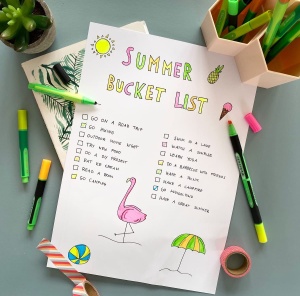 SUMMER
BUCKET LIST
GO ON A ROAD TRIP
GO HIKING
OUTDOOR MOVIE NIGHT
TRY NEW FOOD
DO A DIY PROJECT
EAT ICE CREAM
READ A BOOK
GO CAMPING
SWIM IN A LAKE
WATCH A SUNRISE
LEARN YOGA
DO A BARBECUE WITH FRIENDS
HAVE A PICNIC
HAVE A CAMPFIRE
GO
HAVE A GREAT SUMMER